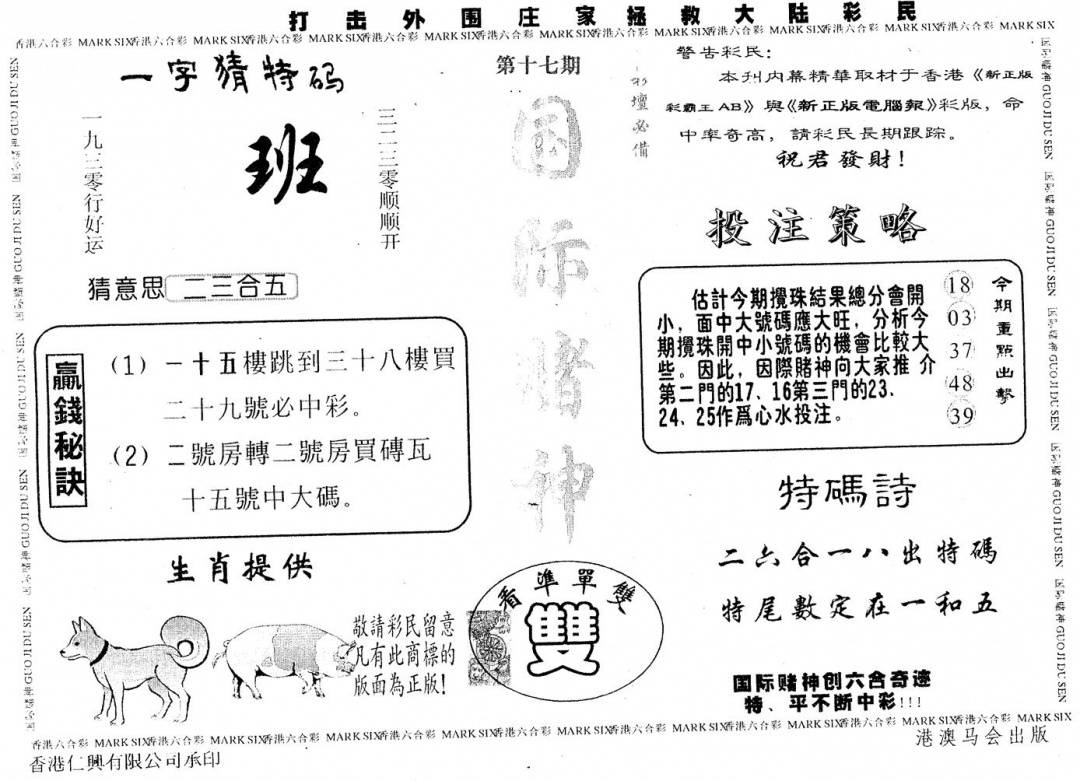 打击外围庄家拯救大陆彩民
香港六合彩 MARK SIX香港六合彩 MARK SIX香港六合彩 MARK SIX香港六合彩 MARK SIX香港六合彩 MARK SIX香港六合彩 MARK SIX香港六合彩 MARK SIX香港六合彩 MARK SIX香港六合彩 MARK SIX
一字猜特码
班
一九三零行好运
三一二三零顺顺开
猜意思 二三合五
贏錢秘訣
(1) 一十五樓跳到三十八樓買
二十九號必中彩。
(2) 二號房轉二號房買磚瓦
十五號中大碼。
生肖提供
敬請彩民留意
凡有此商標的
版面為正版!
第十七期
国际赌神
彩壇必備
看準單雙
雙
警告彩民:
本刊内幕精華取材于香港《新正版
彩霸王 AB》與《新正版電腦報》彩版，命
中率奇高，請彩民長期跟踪。
祝君發財!
投注策略
估計今期攪珠結果總分會開
小，面中大號碼應大旺，分析今
期攪珠開中小號碼的機會比較大
些。因此，因際賭神向大家推 介
第二門的17、16第三門的23、
24、25作爲心水投注。
18
03
37
48
39
今期重點出擊
特碼詩
二六合一八出特碼
特尾數定在一和五
国际赌神创六合奇迹
特、平不断中彩!!!
国际赌神 GUO JI DU SEN 国际赌神 GUO JI DU SEN 国际赌神 GUO JI DU SEN 国际赌神 GUO JI DU SEN 国际赌神 GUO JI DU SEN
香港六合彩 MARK SIX香港六合彩 MARK SIX香港六合彩 MARK SIX香港六合彩 MARK SIX香港六合彩 MARK SIX香港六合彩 MARK SIX香港六合彩 MARK SIX香港六合彩 MARK SIX香港六合彩 MARK SIX
香港仁興有限公司承印
港澳马会出版